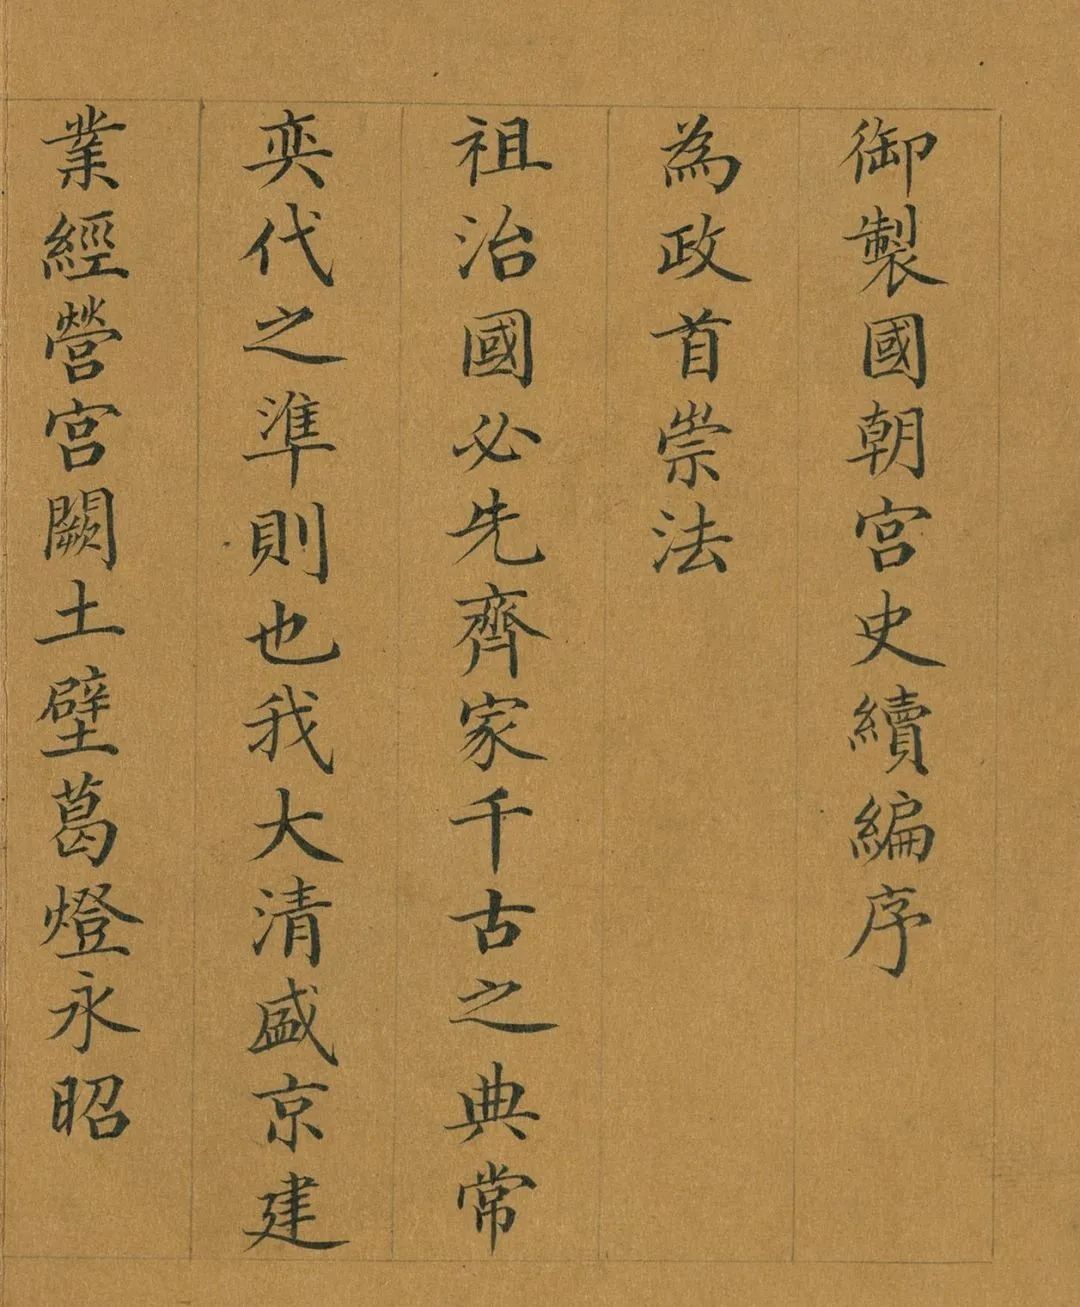 御製國朝宮史續編序
為政首崇法
祖治國必先齊家千古之典常
奕代之準則也我大清盛京建
業經營宮闕土壁葛燈永昭